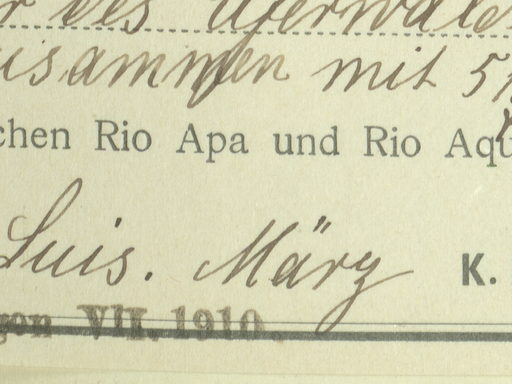 r des Uferwald
zusammen mit 5
chen Rio Apa und Rio Aqu
Luis. März K.
gen VII. 1910.